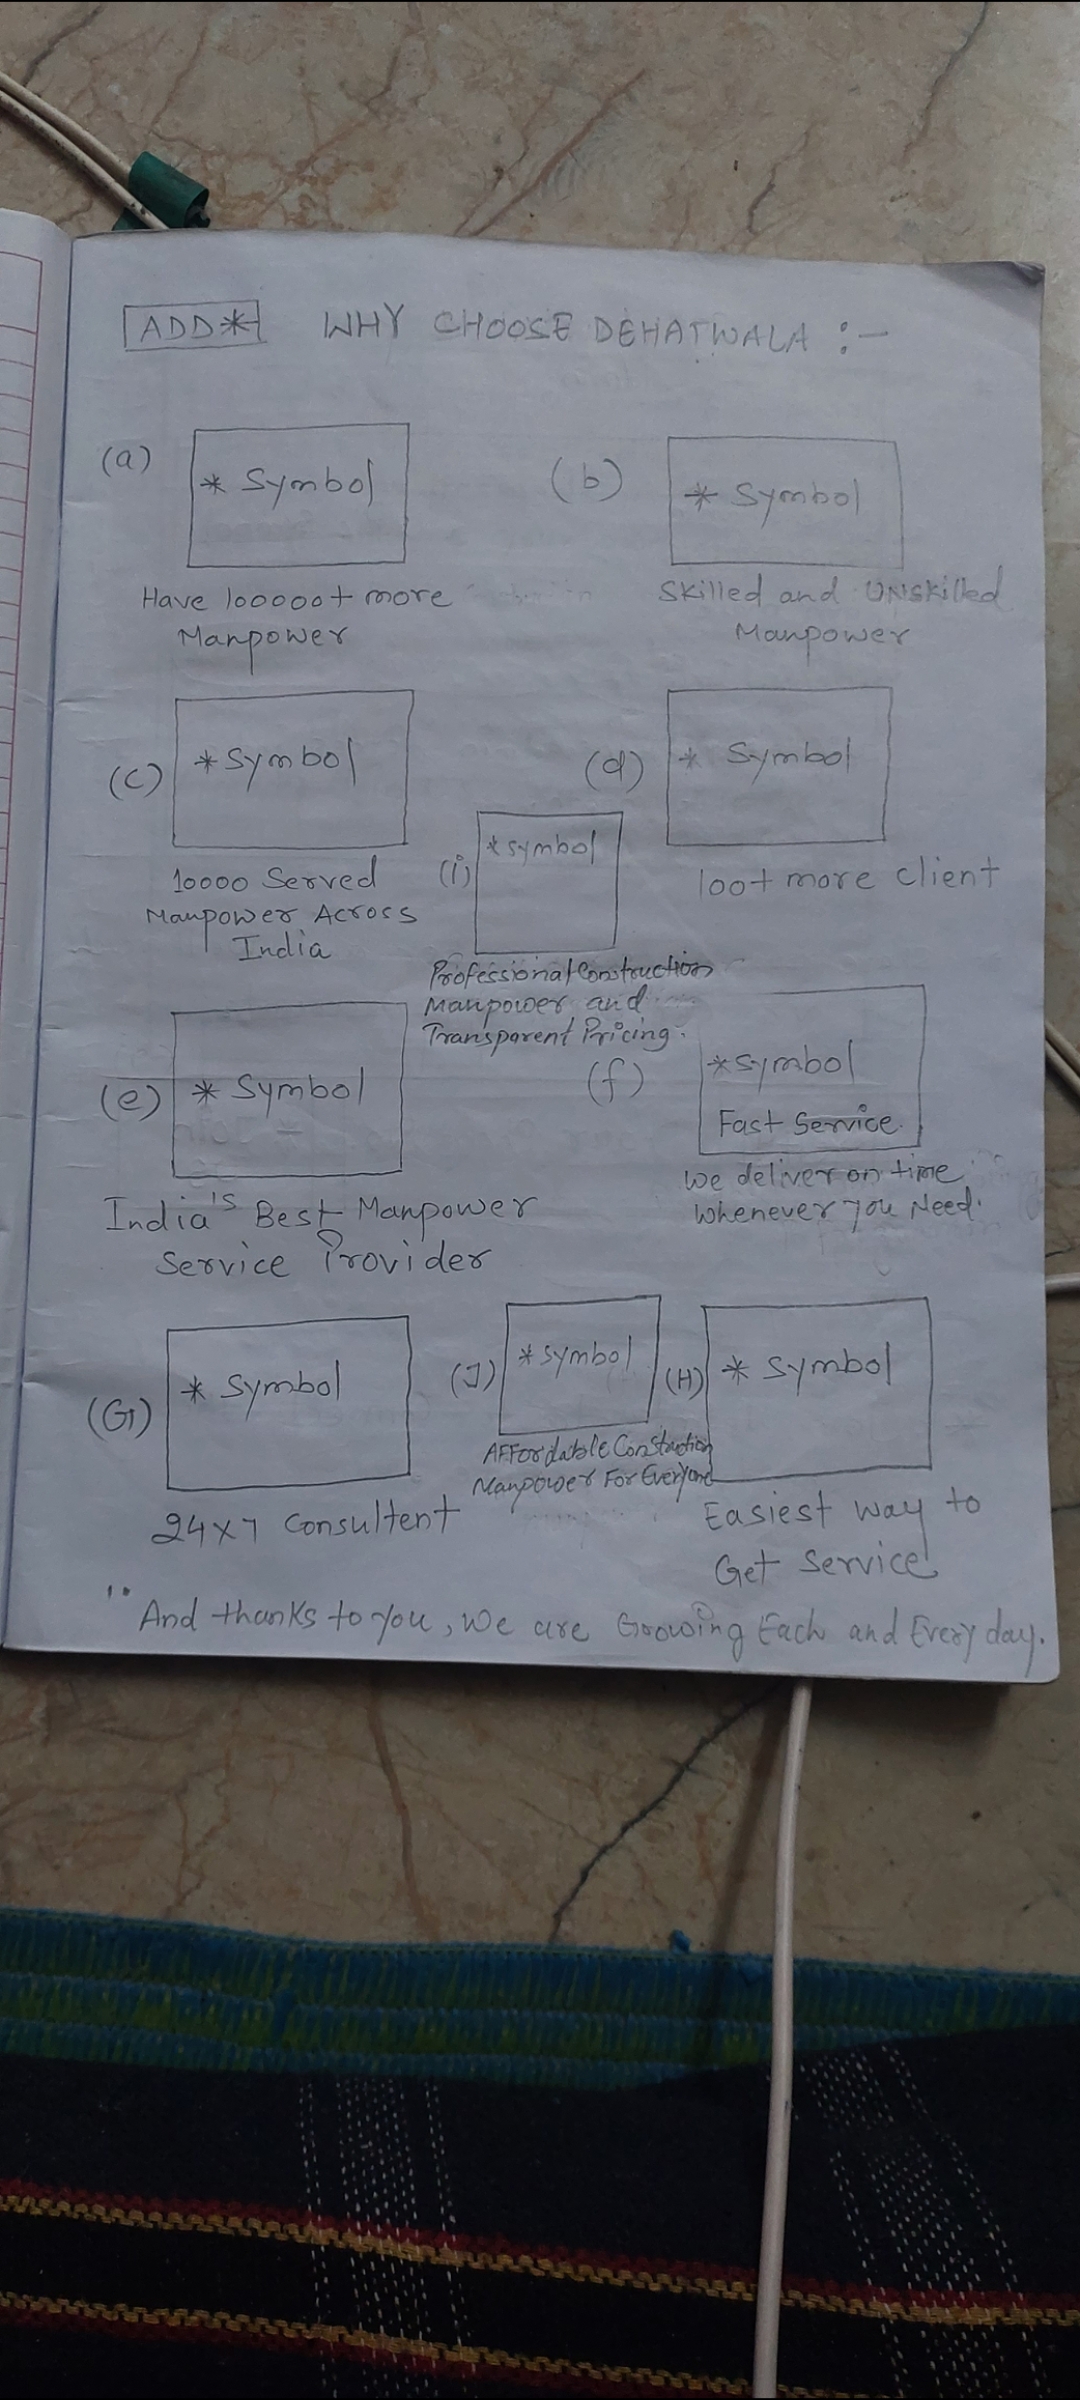 ADD* WHY CHOOSE DEHATWALA :-
(a) * Symbol
Have 100000+ more
Manpower
(b) * Symbol
Skilled and UNSkilled
Manpower
(c) * Symbol
10000 Served
Manpower Across
India
(d) * Symbol
100+ more client
(i) * symbol
Professional Construction
Manpower and
Transparent Pricing.
(e) * Symbol
India's Best Manpower
Service Provider
(f) * Symbol
Fast Service.
We deliver on time
Whenever you Need.
(G) * Symbol
24x7 Consultent
(J) * Symbol
AFFordable Construction
Manpower For Everyone
(H) * Symbol
Easiest way to
Get Service
"And thanks to you, We are Growing Each and Every day.